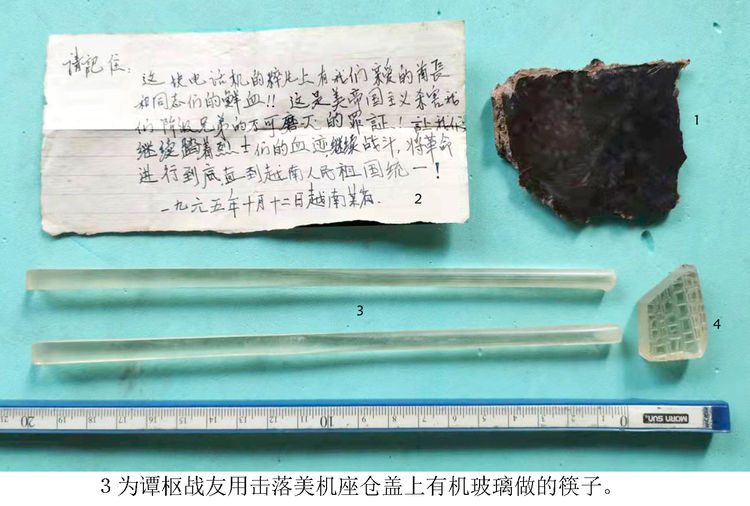 请記住:
这块电话机的碎片上有我们亲爱的首長
和同志们的鲜血!! 这是美帝国主义杀害我
们阶级兄弟的不可磨灭的罪証! 让我们
继续踏着烈士们的血迹,继续战斗,将革命
进行到底,直到越南人民祖国统一!
一九六五年十月十二日越南某省.
1
2
3
4
20 10 0
MORN SUN.
3为谭枢战友用击落美机座仓盖上有机玻璃做的筷子。